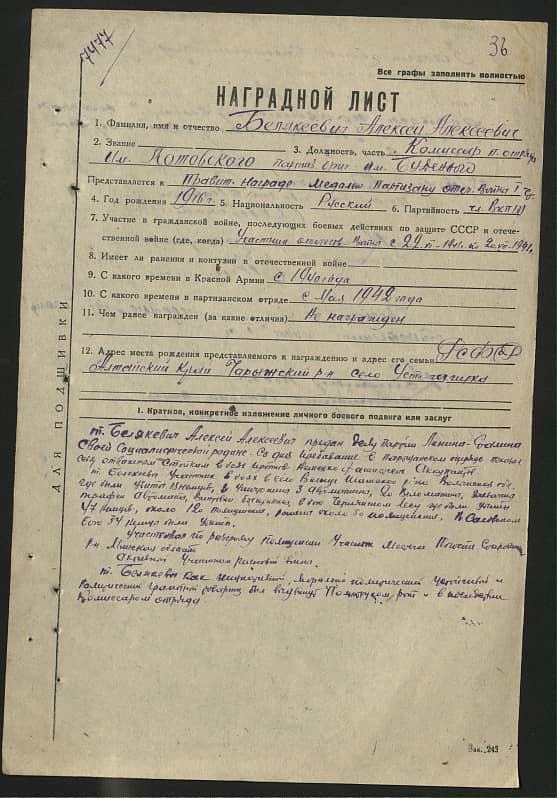 7477
36
Все графы заполнять полностью
НАГРАДНОЙ ЛИСТ
1. Фамилия, имя и отчество Белякевич Алексей Алексеевич
2. Звание 3. Должность, часть Комиссар п. отряда
им. Котовского партиз. бриг. им. Буденного
Представляется к Правит. награде Медаль Партизану отеч. Война I ст.
4. Год рождения 1916 г. 5. Национальность Русский 6. Партийность чл. ВКП(б)
7. Участие в гражданской войне, последующих боевых действиях по защите СССР и отече-
ственной войне (где, когда) Участник отечеств. войны с 22
8. Имеет ли ранения и контузии в отечественной войне
9. С какого времени в Красной Армии с 1940 года
10. С какого времени в партизанском отряде с Мая 1942 года
11. Чем ранее награжден (за какие отличия) Не награжден
12. Адрес места рождения представляемого к награждению и адрес его семьи РСФСР
Алтайский край Чарыжский р-н село
ДЛЯ ПОДШИВКИ
I. Краткое, конкретное изложение личного боевого подвига или заслуг
т. Белякевич Алексей Алексеевич предан делу партии Ленина-Сталина
Своей Социалистической родине. Со дня пребывания в партизанском отряде показал
себя отважным стойким в боях против Немецко фашистск.
т. Белякевич Участник в боях в селе
где были убиты 3 автомата, 20
трофеи лесу где были убиты
47 немцев, около 12 полицаев, ранено около 30 полицейских. В
бою 34 немца были убиты.
Участвовал по разгрому полиции
р-н Минская область
Активный Участник рельсовой войны.
т. Белякевич Как инициативный, морально политический устойчивый и
политически грамотный товарищ был выдвинут Политруком роты и в последствии
Комиссаром отряда.
Зак. 243